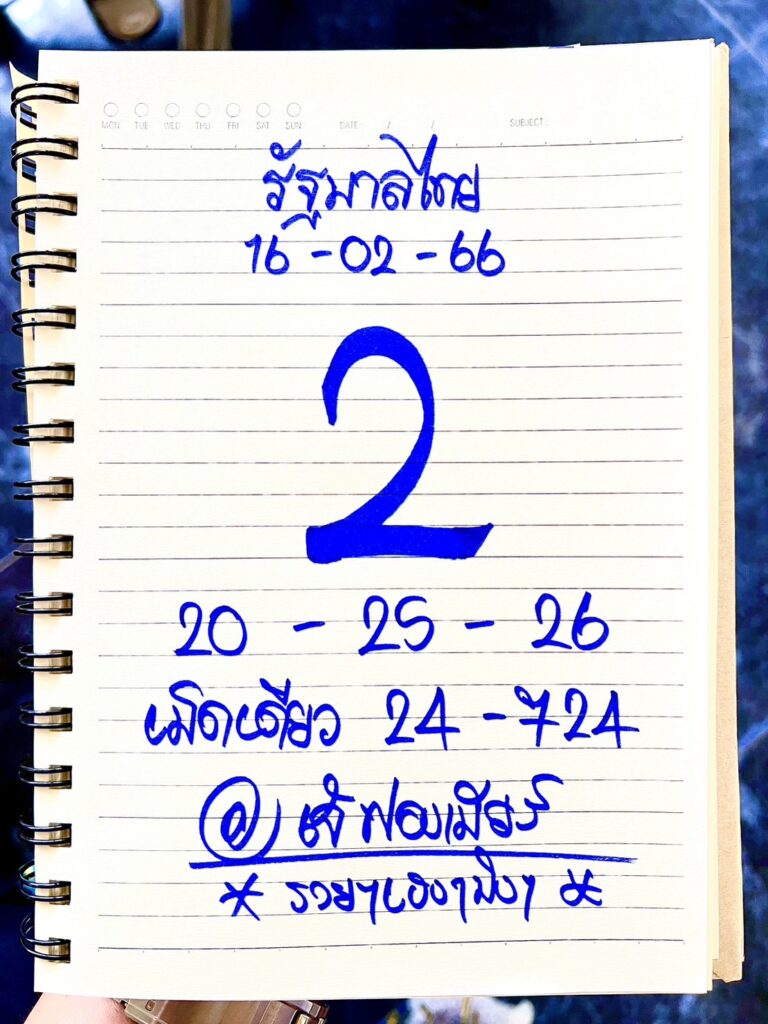 MON TUE WED THU FRI SAT SUN DATE: / / SUBJECT:
รัฐบาลไทย
16 - 02 - 66
2
20 - 25 - 26
เม็ดเดียว 24 - 724
เจ๊ฟองเบียร์
* รวยๆเฮงๆปังๆ *